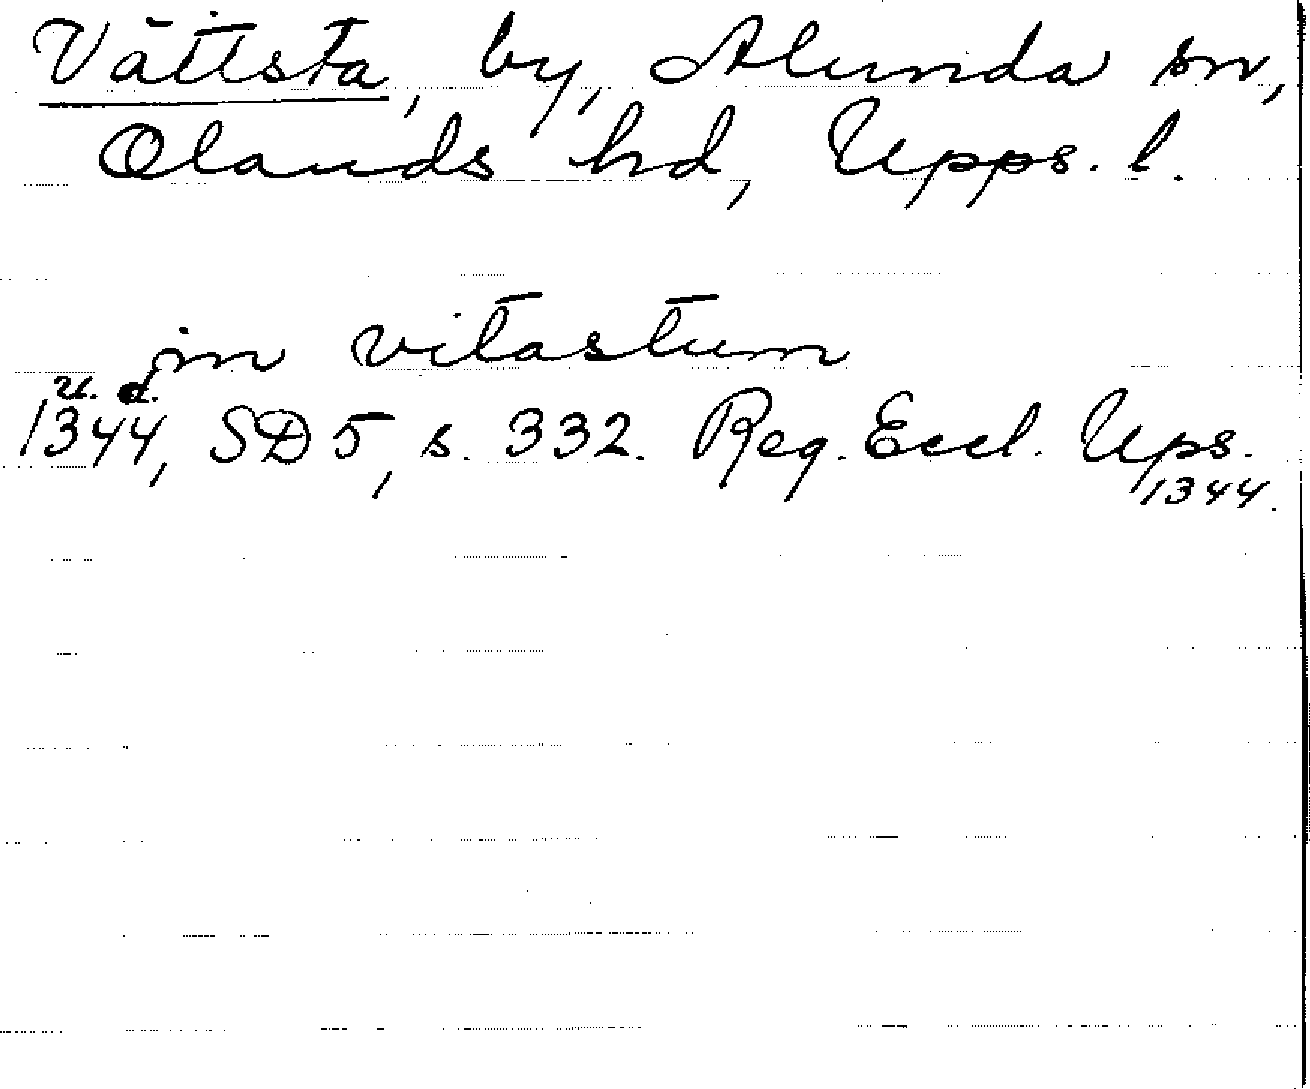 Vättsta, by, Alunda sn,
Olands hd, Upps. l.
in vitastum
u. d.
1344, SD 5, s. 332. Reg. Eccl. Ups.
1344.